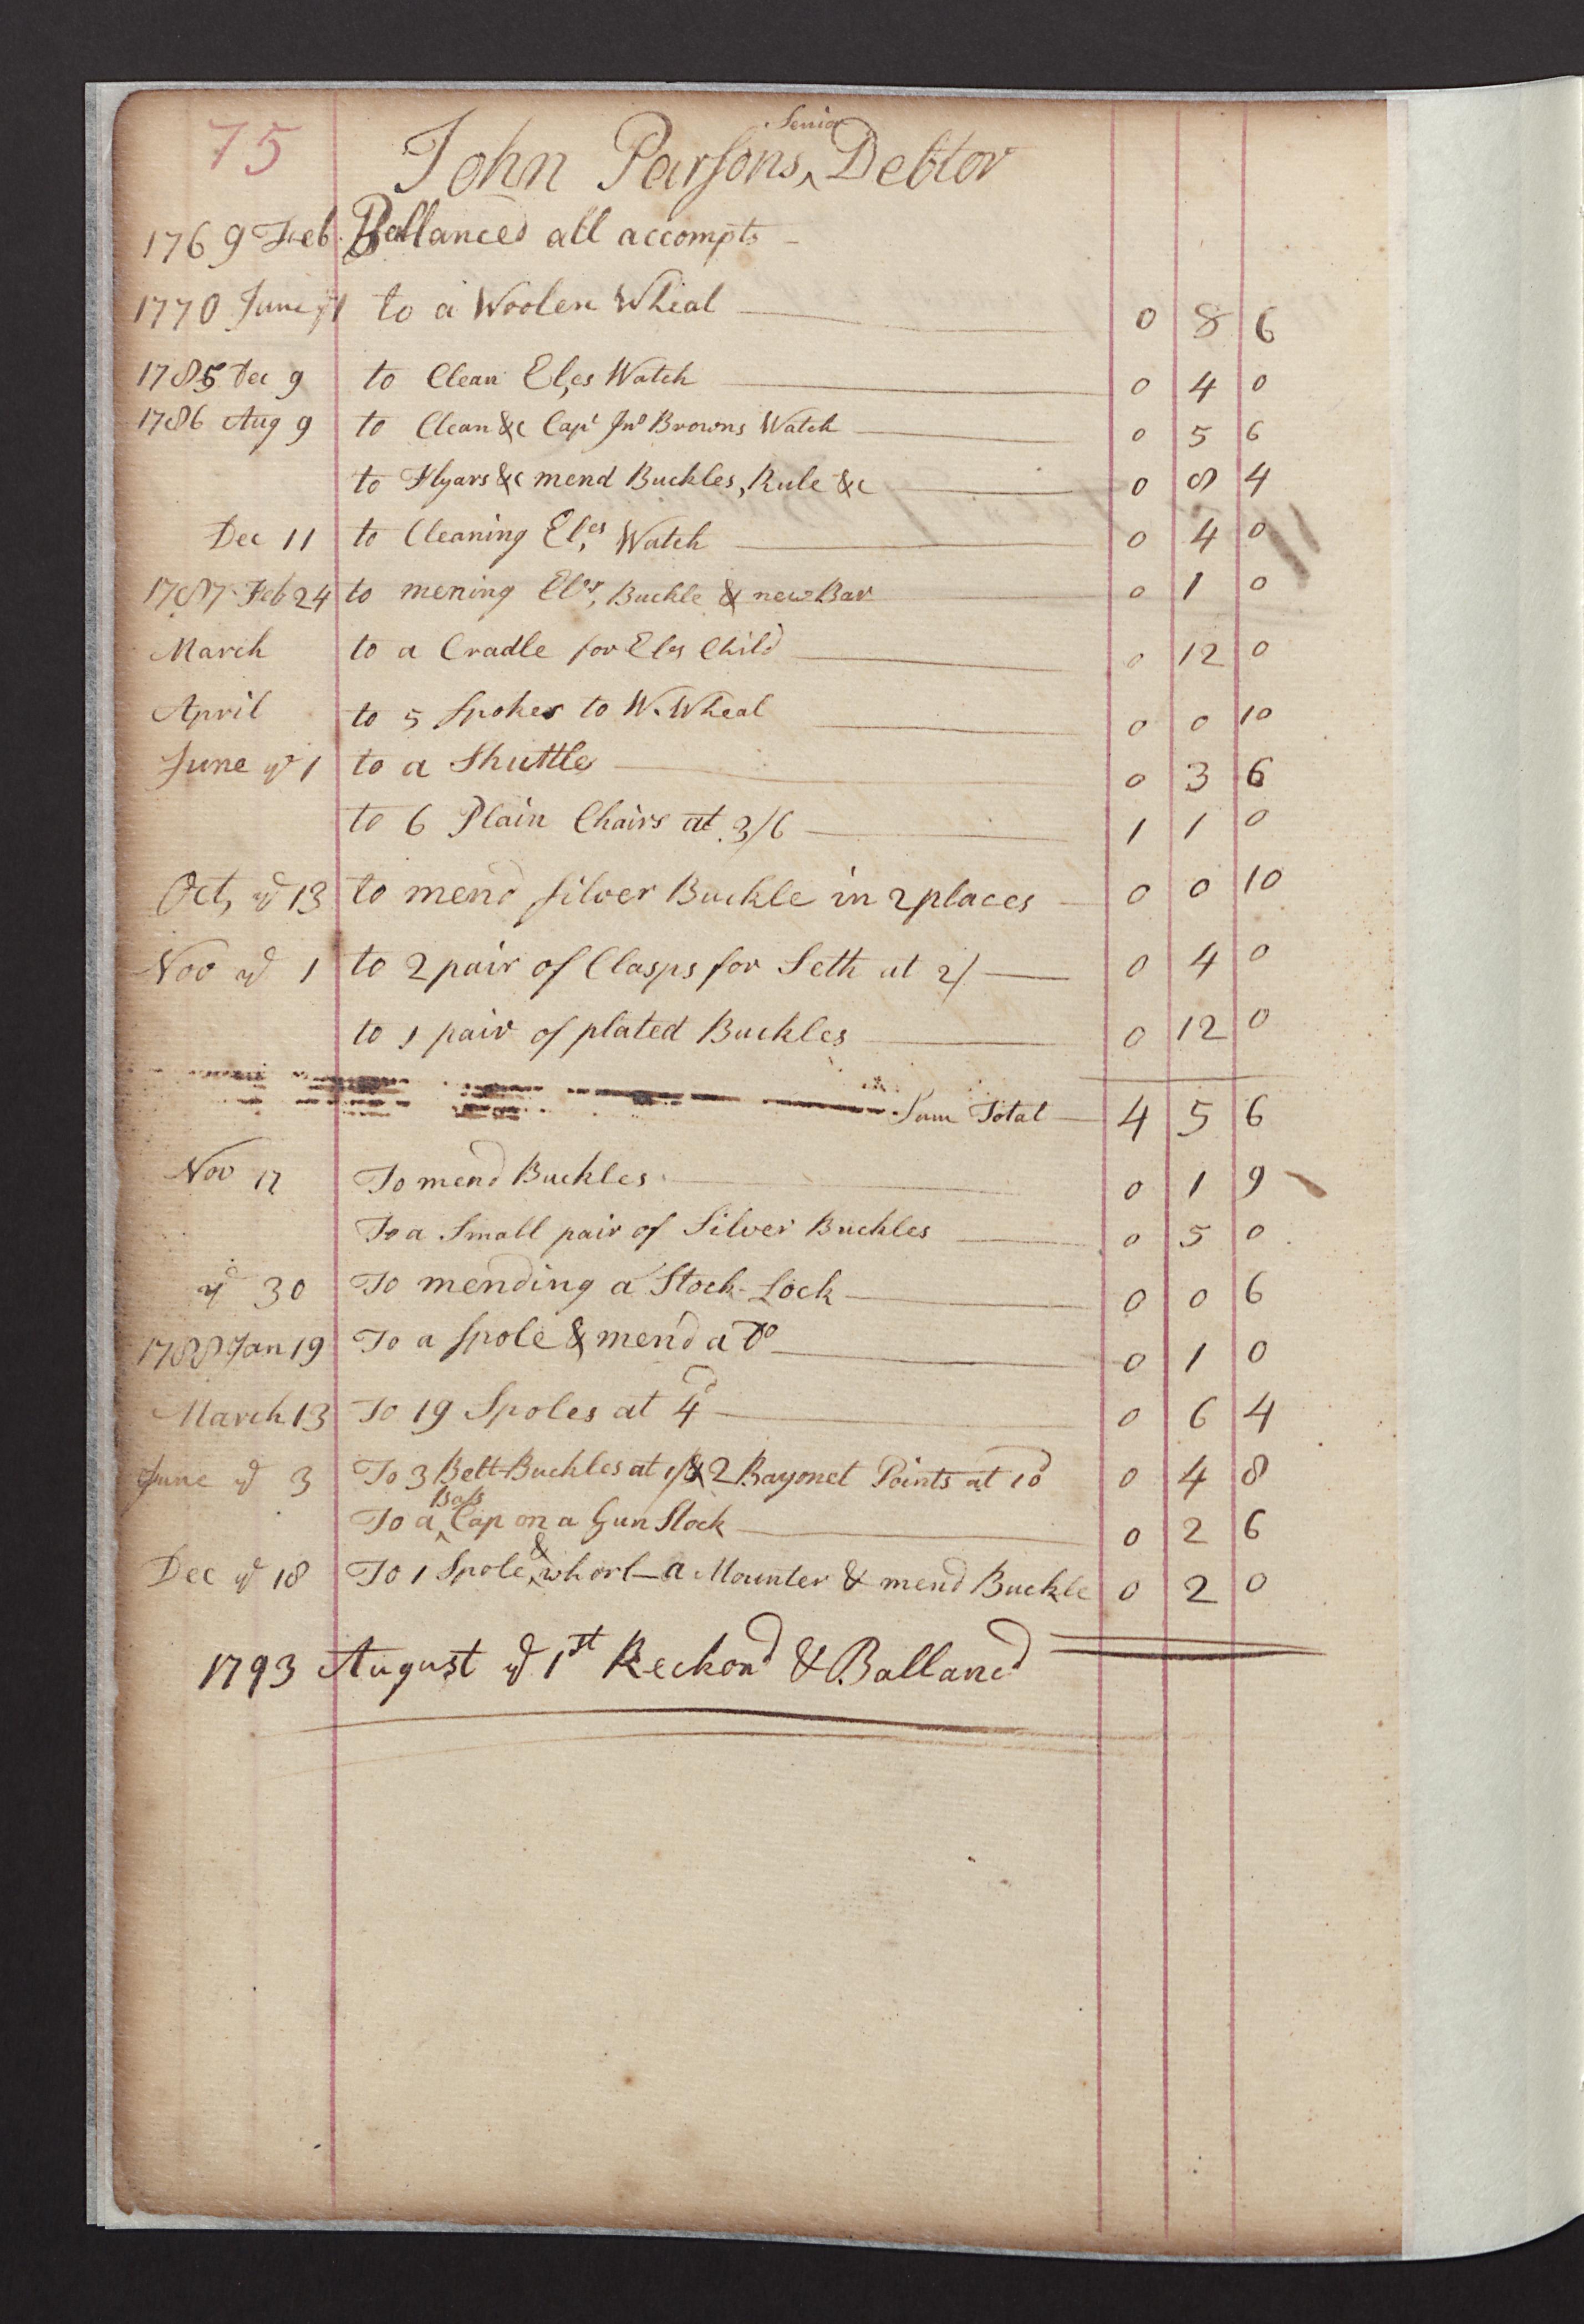 75
Senior
John Parsons ‸ Debtor
1769 Feb. Ballanced all accompts
1770 June yd 1 to a Woolen Wheal 0 8 6
1785 Dec 9 to Clean El,es Watch 0 4 0
1786 Aug 9 to Clean &c Capt Jno Browns Watch 0 5 6
to Flyars &c mend Buckles, Rule &c 0 8 4
Dec 11 to Cleaning El,es Watch 0 4 0
1787 Feb 24 to mening Eles, Buckle & new Bar 0 1 0
March to a Cradle for Eles Child 0 12 0
April to 5 Spokes to W. Wheal 0 0 10
June yd 1 to a Shuttle 0 3 6
to 6 Plain Chairs at 3/6 1 1 0
Oct, yd 13 to mend Silver Buckle in 2 places 0 0 10
Nov yd 1 to 2 pair of Clasps for Seth at 2/ 0 4 0
to 1 pair of plated Buckles 0 12 0
Sum Total 4 5 6
Nov 17 To mend Buckles 0 1 9
To a Small pair of Silver Buckles 0 5 0
yd 30 To mending a Stock-Lock 0 0 6
1788 Jan 19 To a Spole & mend a Do 0 1 0
March 13 To 19 Spoles at 4d 0 6 4
June yd 3 To 3 Belt-Buckles at 1/ & 2 Bayonet Points at 10d 0 4 8
Bass
To a ‸ Cap on a Gun Stock 0 2 6
&
Dec yd 18 To 1 Spole ‸ whorl – a Mounter & mend Buckle 0 2 0
1793 August yd 1st Reckond & Ballancd